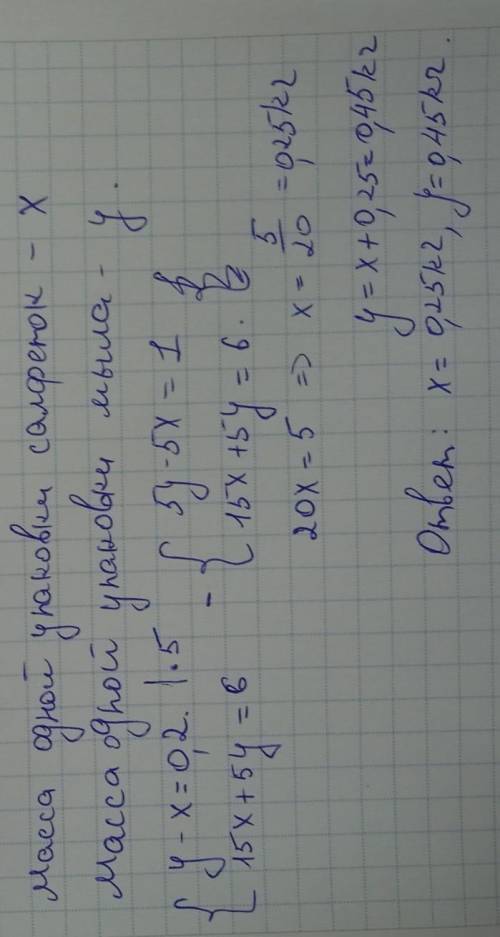 Масса одной упаковки салфеток - x
Масса одной упаковки мыла - y.
{ y - x = 0,2. | · 5 - { 5y - 5x = 1
15x + 5y = 6 15x + 5y = 6.
20x = 5 => x = 5/20 = 0,25kг
y = x + 0,25 = 0,45kг
Ответ: x = 0,25kг, y = 0,45kг.